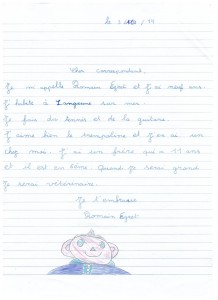 Cher correspondant,
Je m'appelle Romain et j'ai neuf ans.
J'habite à sur mer.
Je fais du tennis et de la guitare.
J'aime bien le trampoline et j'en ai un
chez moi. J'ai un frère qui a 11 ans
et il est en 6ème. Quand je serai grand
je serai vétérinaire.
Je t'embrasse
Romain